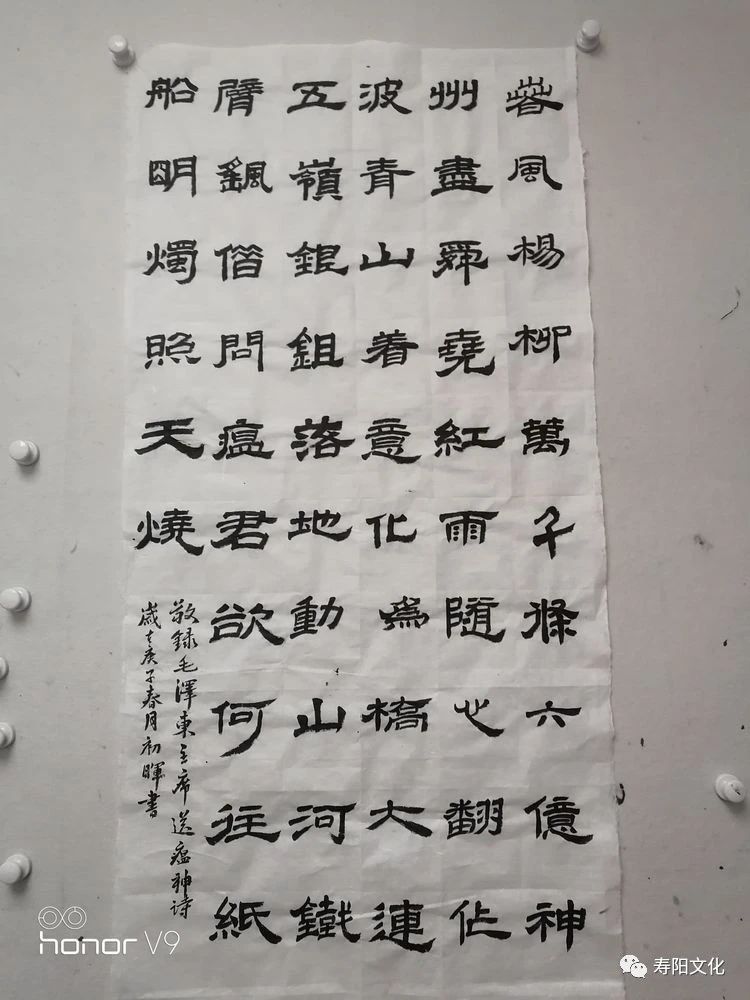 春風楊柳萬千條六億神
州盡舜堯紅雨随心翻作
波青山着意化為橋大連
五嶺銀鉏落地動山河鐵
臂颻借問瘟君欲何往紙
船明燭照天燒
敬録毛澤東主席送瘟神诗
歲在庚子春月初暉書
honor V9
寿阳文化